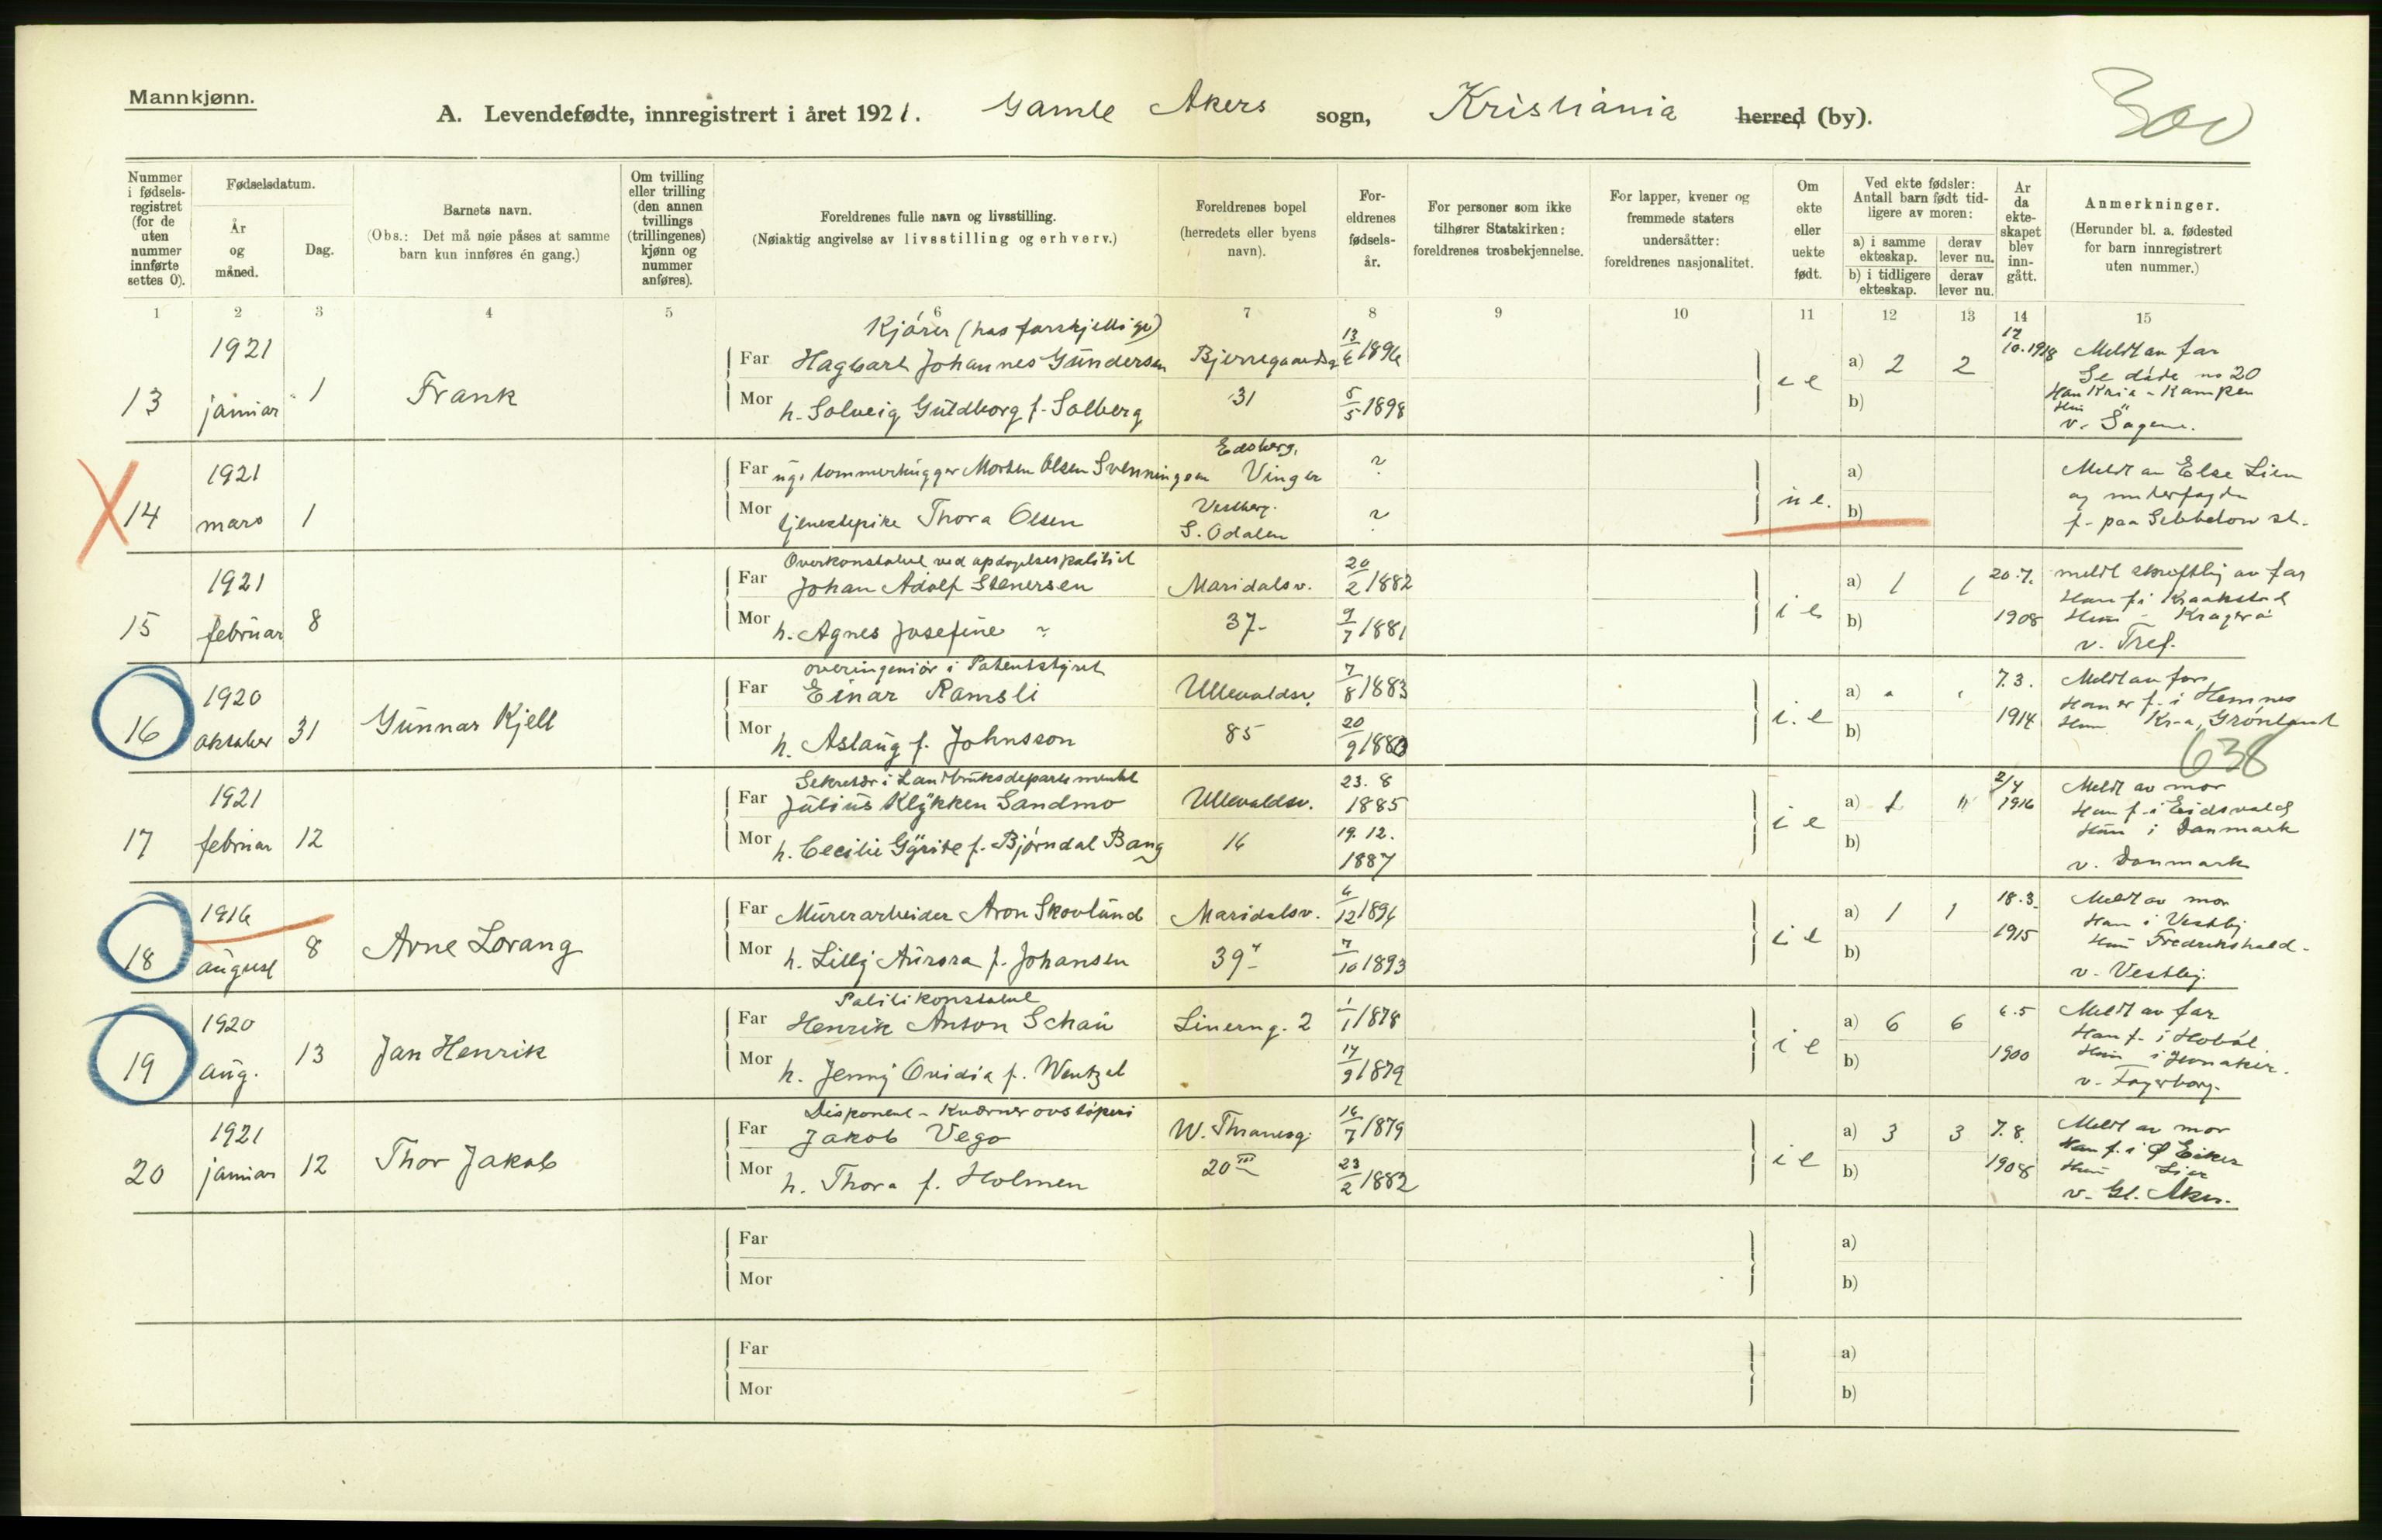 Mannkjønn.
A. Levendefødte, innregistrert i året 1921. Gamle Akers sogn, Kristiania herred (by).
300
Nummer i fødsels-registret (for de uten nummer innførte settes 0).
Fødselsdatum.
År og måned.
Dag.
Barnets navn.
(Obs.: Det må nøie påses at samme barn kun innføres én gang.)
Om tvilling eller trilling (den annen tvillings (trillingenes) kjønn og nummer anføres).
Foreldrenes fulle navn og livsstilling.
(Nøiaktig angivelse av livsstilling og erhverv.)
Foreldrenes bopel (herredets eller byens navn).
For-eldrenes fødsels-år.
For personer som ikke tilhører Statskirken: foreldrenes trosbekjennelse.
For lapper, kvener og fremmede staters undersåtter: foreldrenes nasjonalitet.
Om ekte eller uekte født.
Ved ekte fødsler: Antall barn født tid-ligere av moren:
a) i samme ekteskap.
derav lever nu.
b) i tidligere ekteskap.
derav lever nu.
År da ekte-skapet blev inn-gått.
Anmerkninger.
(Herunder bl. a. fødested for barn innregistrert uten nummer.)
1 2 3 4 5 6 7 8 9 10 11 12 13 14 15
13 1921 januar 1 Frank
Kjører (hos forskjellige)
Far Hagbart Johannes Gundersen Bjerregaardsg 13/6 1896
Mor h. Solveig Guldborg f. Solberg 31 5/5 1898
a) 2 2
b)
17/10.1918
Meldt av far
Se døde no 20
Han Kria - Kampen
Hun
v. Sagene.
14 1921 mars 1
Far ug. tommerhugger Morten Olsen Svenningsen Edsberg, Vinger ?
Mor tjenestepike Thora Olsen S. Odalen ?
u e.
a)
b)
Meldt av Else Lien
f. paa
15 1921 februar 8
Overkonstabel ved opdagelsespolitiet
Far Johan Adolf Stenersen Maridalsv. 20/2 1882
Mor h. Agnes Josefine ~ 37- 9/7 1881
i e
a) 1 1
b)
20.7. 1908
meldt skriftlig av far
Han f. i Kraakstad
Hun - Kragerø
v. Tref.
16 1920 oktober 31 Gunnar Kjell
overingeniør i Patentstyret
Far Einar Ramsli Ullevaldsv. 7/8 1883
Mor h. Aslaug f. Johnsson 85 20/9 1880
i. e
a)
b)
7.3. 1914
Meldt av far
Han er f. i Hemnes
Hun Kr.a, Grønland
638
17 1921 februar 12
Sekretær i Landbruksdepartementet
Far Julius Klykken Sandmo Ullevaldsv. 23. 8 1885
Mor h. Cecilie Gyrite f. Bjørndal Bang 16 19. 12. 1887
i e
a) 1 "
b)
2/4 1916
Meldt av mor
Han f. i Eidsvold
Hun i Danmark
v. Danmark
18 1916 august 8 Arne Lorang
Far Murerarbeider Aron Skovlund Maridalsv. 6/12 1894
Mor h. Lilly Aurora f. Johansen 39 7/10 1893
i e
a) 1 1
b)
18.3. 1915
Meldt av mor
Han i Vestby
Hun Fredrikshald-
v. Vestby.
19 1920 aug. 13 Jan Henrik
Politikonstabel
Far Henrik Anton Schau Linerng. 2 1/1 1878
Mor h. Jenny Ovidia f. Wentzel 14/9 1879
i e
a) 6 6
b)
6.5 1900
Meldt av far
Han f. i Hobøl
Hun i
v. Fagerborg.
20 1921 januar 12 Thor Jakob
Disponent - Kværner ovstøperi
Far Jakob Vego W. Thranesg. 16/7 1879
Mor h. Thora f. Holmen 20 III 23/2 1882
i e
a) 3 3
b)
7.8. 1908
Meldt av mor
Han f. i Ø Eiker
Hun Lier
v. Gl. Aker.
Far
Mor
a)
b)
Far
Mor
a)
b)